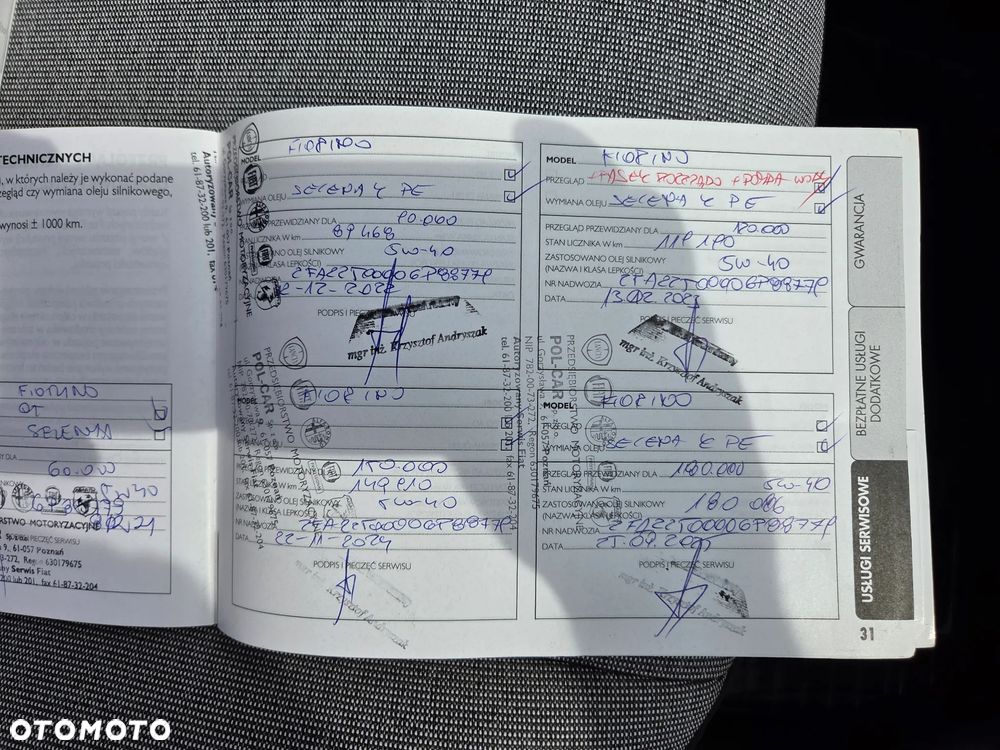 TECHNICZNYCH
w których należy je wykonać podane
przegląd czy wymiana oleju silnikowego,
wynosi ± 1000 km.
Autoryzowany
tel. 61-87-32-200 lub 201, fax
FIORINO
SELENIA
60.000
5W40
MOTORYZACYJNE
PIECZĘĆ SERWISU
9, 61-057 Poznań
Regon 630179675
Serwis Fiat
lub 201, fax 61-87-32-204
MODEL FIORINO
WYMIANA OLEJU SELENA K PE
PRZEWIDZIANY DLA 90.000
STAN LICZNIKA W km 89468
OLEJ SILNIKOWY 5W-40
KLASA LEPKOŚCI)
ZFA22500006P9877P
12-12-2022
PODPIS I PIECZĘĆ SERWISU
mgr inż. Krzysztof Andryszak
MODEL FIORINO
PRZEGLĄD + PASEK ROZRZĄDU + POMPA WODY
WYMIANA OLEJU SELENA K PE
PRZEGLĄD PRZEWIDZIANY DLA 120.000
STAN LICZNIKA W km 119190
ZASTOSOWANO OLEJ SILNIKOWY 5W-40
(NAZWA I KLASA LEPKOŚCI)
NR NADWOZIA ZFA22500006P9877P
DATA
PODPIS I PIECZĘĆ SERWISU
mgr inż. Krzysztof Andryszak
MODEL FIORINO
PRZEGLĄD PRZEWIDZIANY DLA 150.000
STAN LICZNIKA W km 149910
ZASTOSOWANO OLEJ SILNIKOWY 5W-40
(NAZWA I KLASA LEPKOŚCI)
NR NADWOZIA ZFA22500006P9877P
DATA 22-11-2024
PODPIS I PIECZĘĆ SERWISU
Krzysztof Andryszak
PRZEDSIĘBIORSTWO MOTORYZACYJNE
POL-CAR sp. z o.o.
ul. Gorzysława 9, 61-057 Poznań
NIP 782-00-73-272, Regon 630179675
Autoryzowany Serwis Fiat
tel. 61-87-32-200 lub 201, fax 61-87-32-204
MODEL FIORINO
WYMIANA OLEJU SELENA K PE
PRZEGLĄD PRZEWIDZIANY DLA 180.000
STAN LICZNIKA W km 5W-40
ZASTOSOWANO OLEJ SILNIKOWY 180 086
(NAZWA I KLASA LEPKOŚCI)
NR NADWOZIA ZFA22500006P9877P
DATA
PODPIS I PIECZĘĆ SERWISU
mgr inż. Krzysztof Andryszak
GWARANCJA
BEZPŁATNE USŁUGI
DODATKOWE
USŁUGI SERWISOWE
31
OTOMOTO